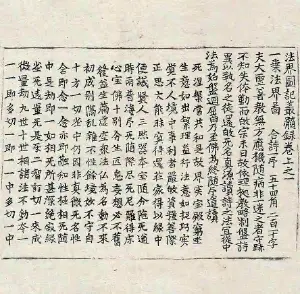 法界圖記叢髓錄卷上之一
一乘法界圖 合詩一印 五十四角 二百一十字
夫大聖善教無方應機隨病非一迷之者守跡
不知失体勤而歸宗未日故依理據教略制槃詩
冀以執名之徒還歸無名之真源讀詩之法宜從中
法為始槃迴屈曲乃至佛為終隨印道讀
死涅槃常共和是故界實寶殿窮坐
生意如出繁理益行法意如捉巧實
覺不人境中事利者嚴歸資糧善際
正思大能昧冥得還莊家得以緣中
便議賢仁三然器本寶隨分陁无道
時雨普海印无隨際盡无尼羅得床
心寶佛十別分生叵息妄想必不舊
發益生滿虛空衆法佛為名動不來
初成別隔亂雜不性餘境妙不守自
十方一切塵中仍圓非真微无名性
含即念一念亦即融知性極相无隨
中是劫即一如相无所甚深絕寂緣
塵无遠量无是互二智證切一來成
微量劫九世十世相諸法不動本一
一一即多切一即一一中多切一中